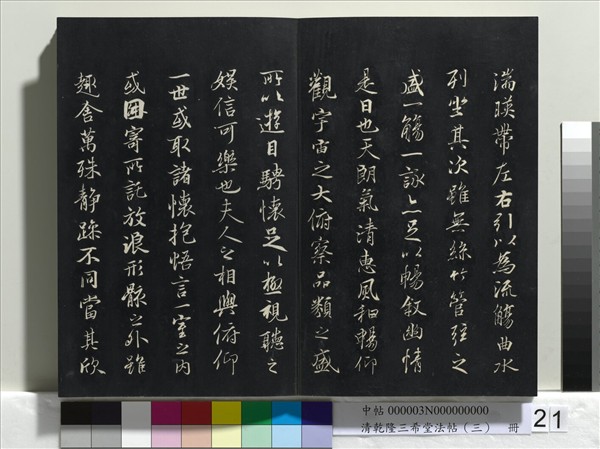 湍暎帶左右引以為流觴曲水
列坐其次雖無絲竹管弦之
盛一觴一詠亦足以暢叙幽情
是日也天朗氣清惠風和暢仰
觀宇宙之大俯察品類之盛
所以遊目騁懷足以極視聽之
娛信可樂也夫人之相與俯仰
一世或取諸懷抱悟言一室之內
或因寄所託放浪形骸之外雖
趣舍萬殊靜躁不同當其欣
中帖 000003N000000000
清乾隆三希堂法帖（三） 冊
21